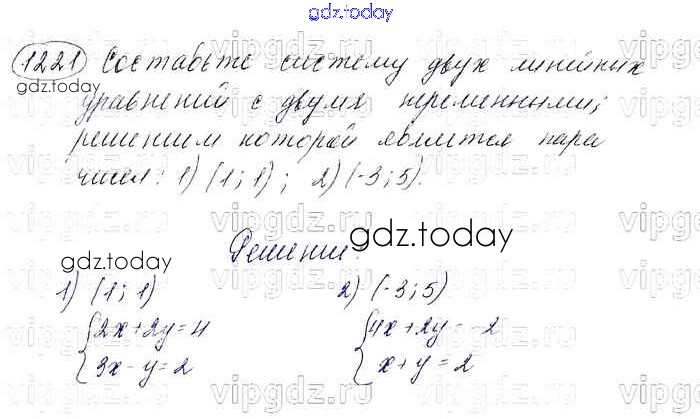 gdz.today
1221 Составьте систему двух линейных
gdz.today
уравнений с двумя переменными,
решением которой является пара
чисел: 1) (1; 1); 2) (-3; 5).
Решение:
gdz.today
gdz.today
1) (1; 1)
2x+2y=4
3x-y=2
2) (-3; 5)
4x+2y=-2
x+y=2
vipgdz.ru